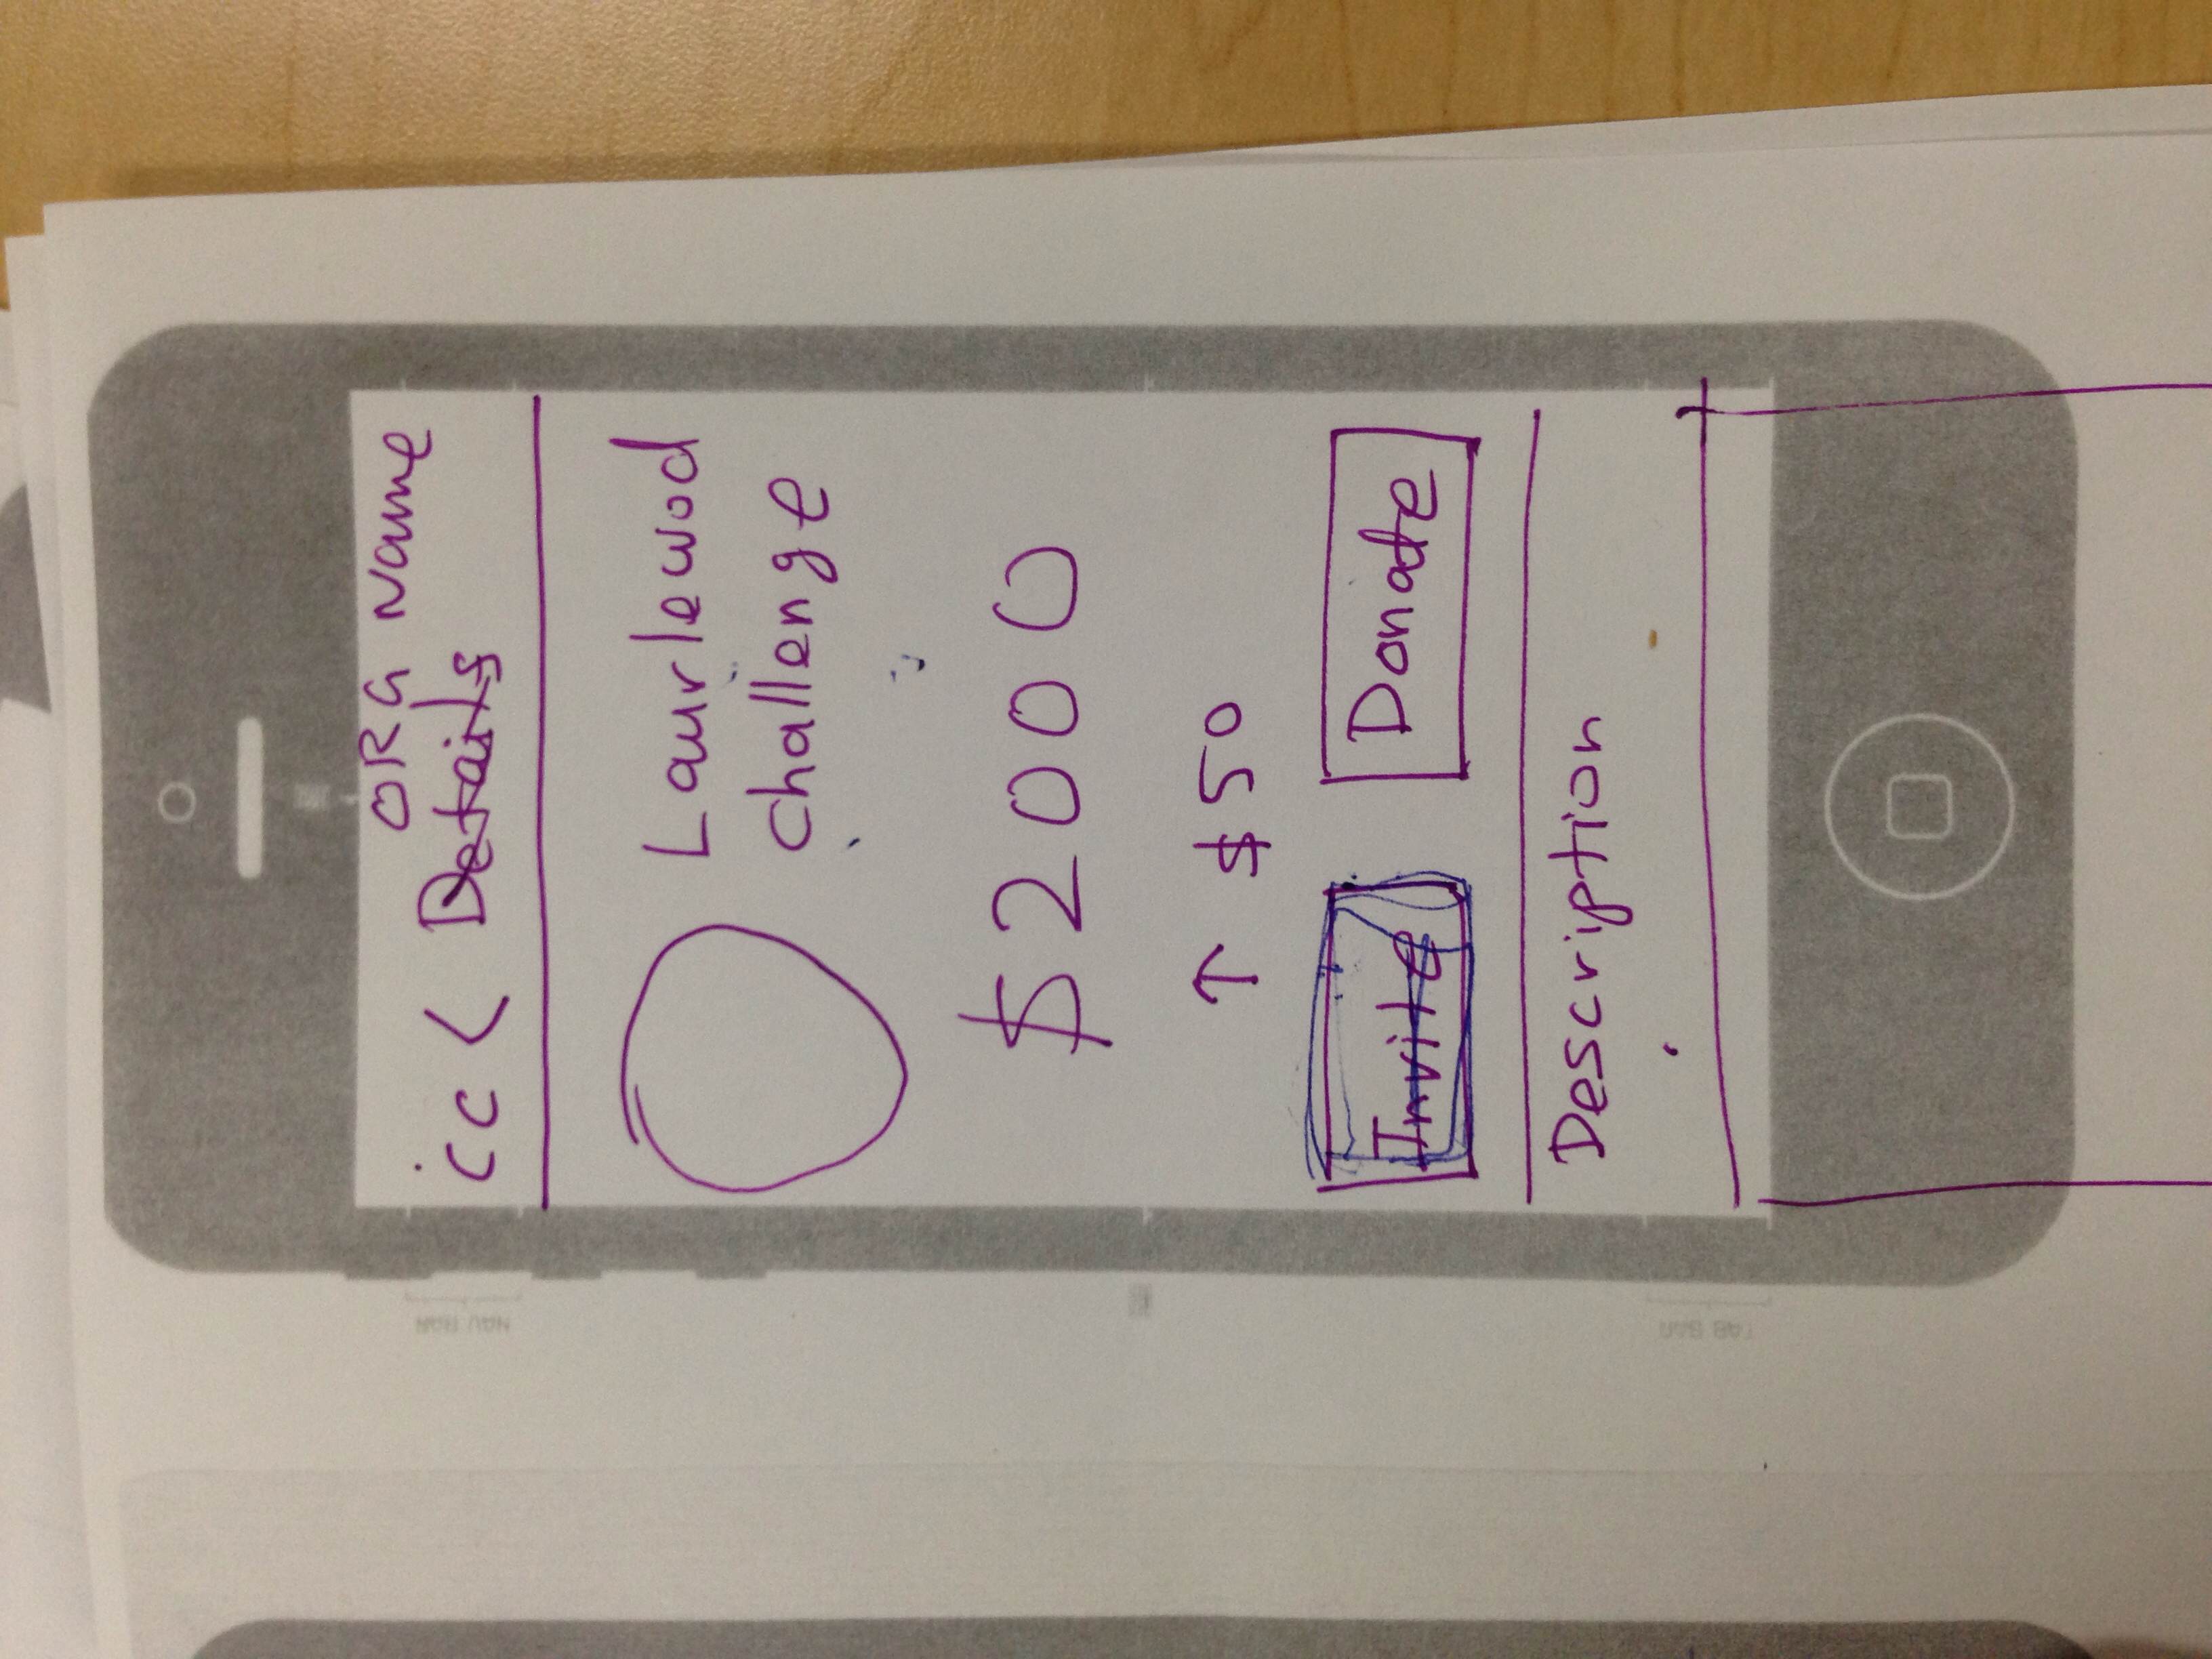 ORG Name
cc < Details
Laurlewod
challenge
$2000
↑ $50
Invite Donate
Description
NAV BAR
TAB BAR